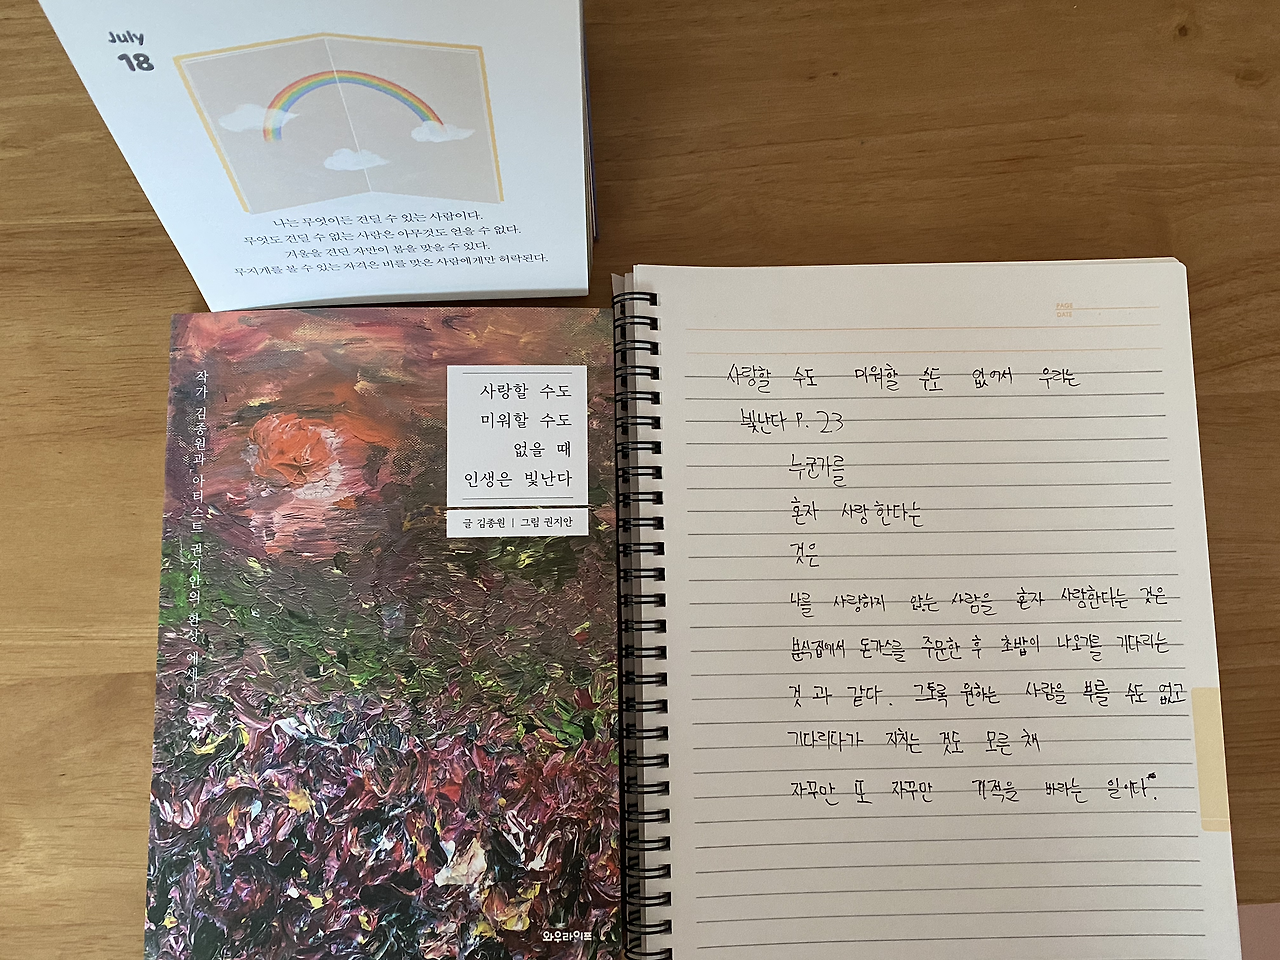 July
18
나는 무엇이든 견딜 수 있는 사람이다.
무엇도 견딜 수 없는 사람은 아무것도 얻을 수 없다.
겨울을 견딘 자만이 봄을 맞을 수 있다.
무지개를 볼 수 있는 자격은 비를 맞은 사람에게만 허락된다.
작가 김종원과 아티스트 권지안의 환상 에세이
사랑할 수도
미워할 수도
없을 때
인생은 빛난다
글 김종원 | 그림 권지안
와우라이프
PAGE
DATE
사랑할 수도 미워할 수도 없어서 우리는
빛난다 P. 23
누군가를
혼자 사랑한다는
것은
나를 사랑하지 않는 사람을 혼자 사랑한다는 것은
분식집에서 돈가스를 주문한 후 초밥이 나오기를 기다리는
것과 같다. 그토록 원하는 사람을 부를 수도 없고
기다리다가 지치는 것도 모른 채
자꾸만 또 자꾸만 기적을 바라는 일이다.